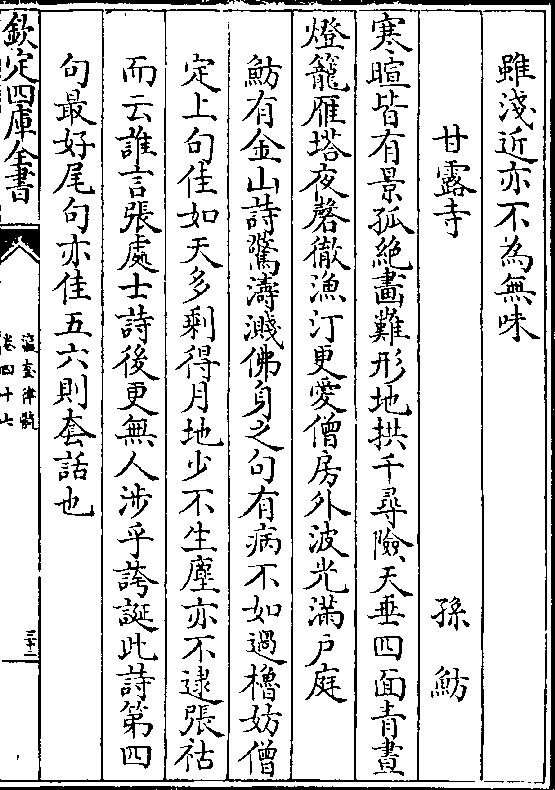 雖淺近亦不為無味
甘露寺　　孫魴
寒暄皆有景孤絶畫難形地拱千尋險天垂四面青晝
燈籠雁塔夜磬徹漁汀更愛僧房外波光滿戸庭
魴有金山詩驚濤濺佛身之句有病不如過櫓妨僧
定上句佳如天多剩得月地少不生塵亦不逮張祜
而云誰言張處士詩後更無人涉乎誇誕此詩第四
句最好尾句亦佳五六則套話也
欽定四庫全書
瀛奎律髓
卷四十七
三十二